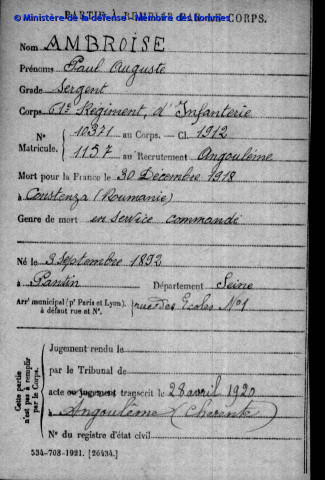 © Ministère de la défense - Mémoire des hommes
PARTIE À REMPLIR PAR LE CORPS.
Nom AMBROISE
Prénoms Paul Auguste
Grade Sergent
Corps 61e Régiment, d'Infanterie
N° 10371 au Corps. — Cl. 1912
Matricule. 1157 au Recrutement Angoulême
Mort pour la France le 30 Décembre 1918
à Constenza (Roumanie)
Genre de mort en service commandé
Né le 3 Septembre 1892
à Pantin Département Seine
Arrt municipal (pr Paris et Lyon), à défaut rue et N°. rue des Ecoles N°1
Cette partie n'est pas à remplir par le Corps.
Jugement rendu le
par le Tribunal de
acte ou jugement transcrit le 28 avril 1920
à Angoulême (Charente)
N° du registre d'état civil
534-708-1921. [26434.]